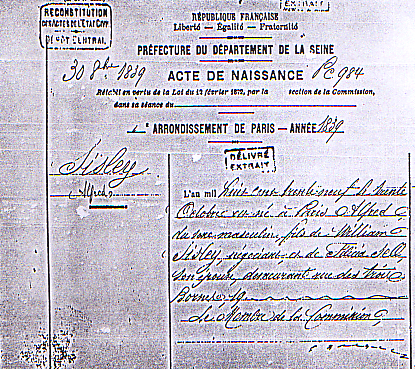 RECONSTITUTION
DES ACTES DE L'ETAT CIVIL
DÉPÔT CENTRAL
EXTRAIT
RÉPUBLIQUE FRANÇAISE
Liberté — Égalité — Fraternité
PRÉFECTURE DU DÉPARTEMENT DE LA SEINE
30 8bre 1839
ACTE DE NAISSANCE
984
Rétabli en vertu de la Loi du 12 février 1872, par la section de la Commission,
dans sa séance du
ARRONDISSEMENT DE PARIS — ANNÉE 1839
DÉLIVRÉ
EXTRAIT
Sisley
Alfred
L'an mil huit cent trente neuf le trente
Octobre est né à Paris Alfred
du sexe masculin, fils de William
Sisley, négociant et de Félicia Sell
son épouse, demeurant rue des trois
Bornes 19
Le Membre de la Commission